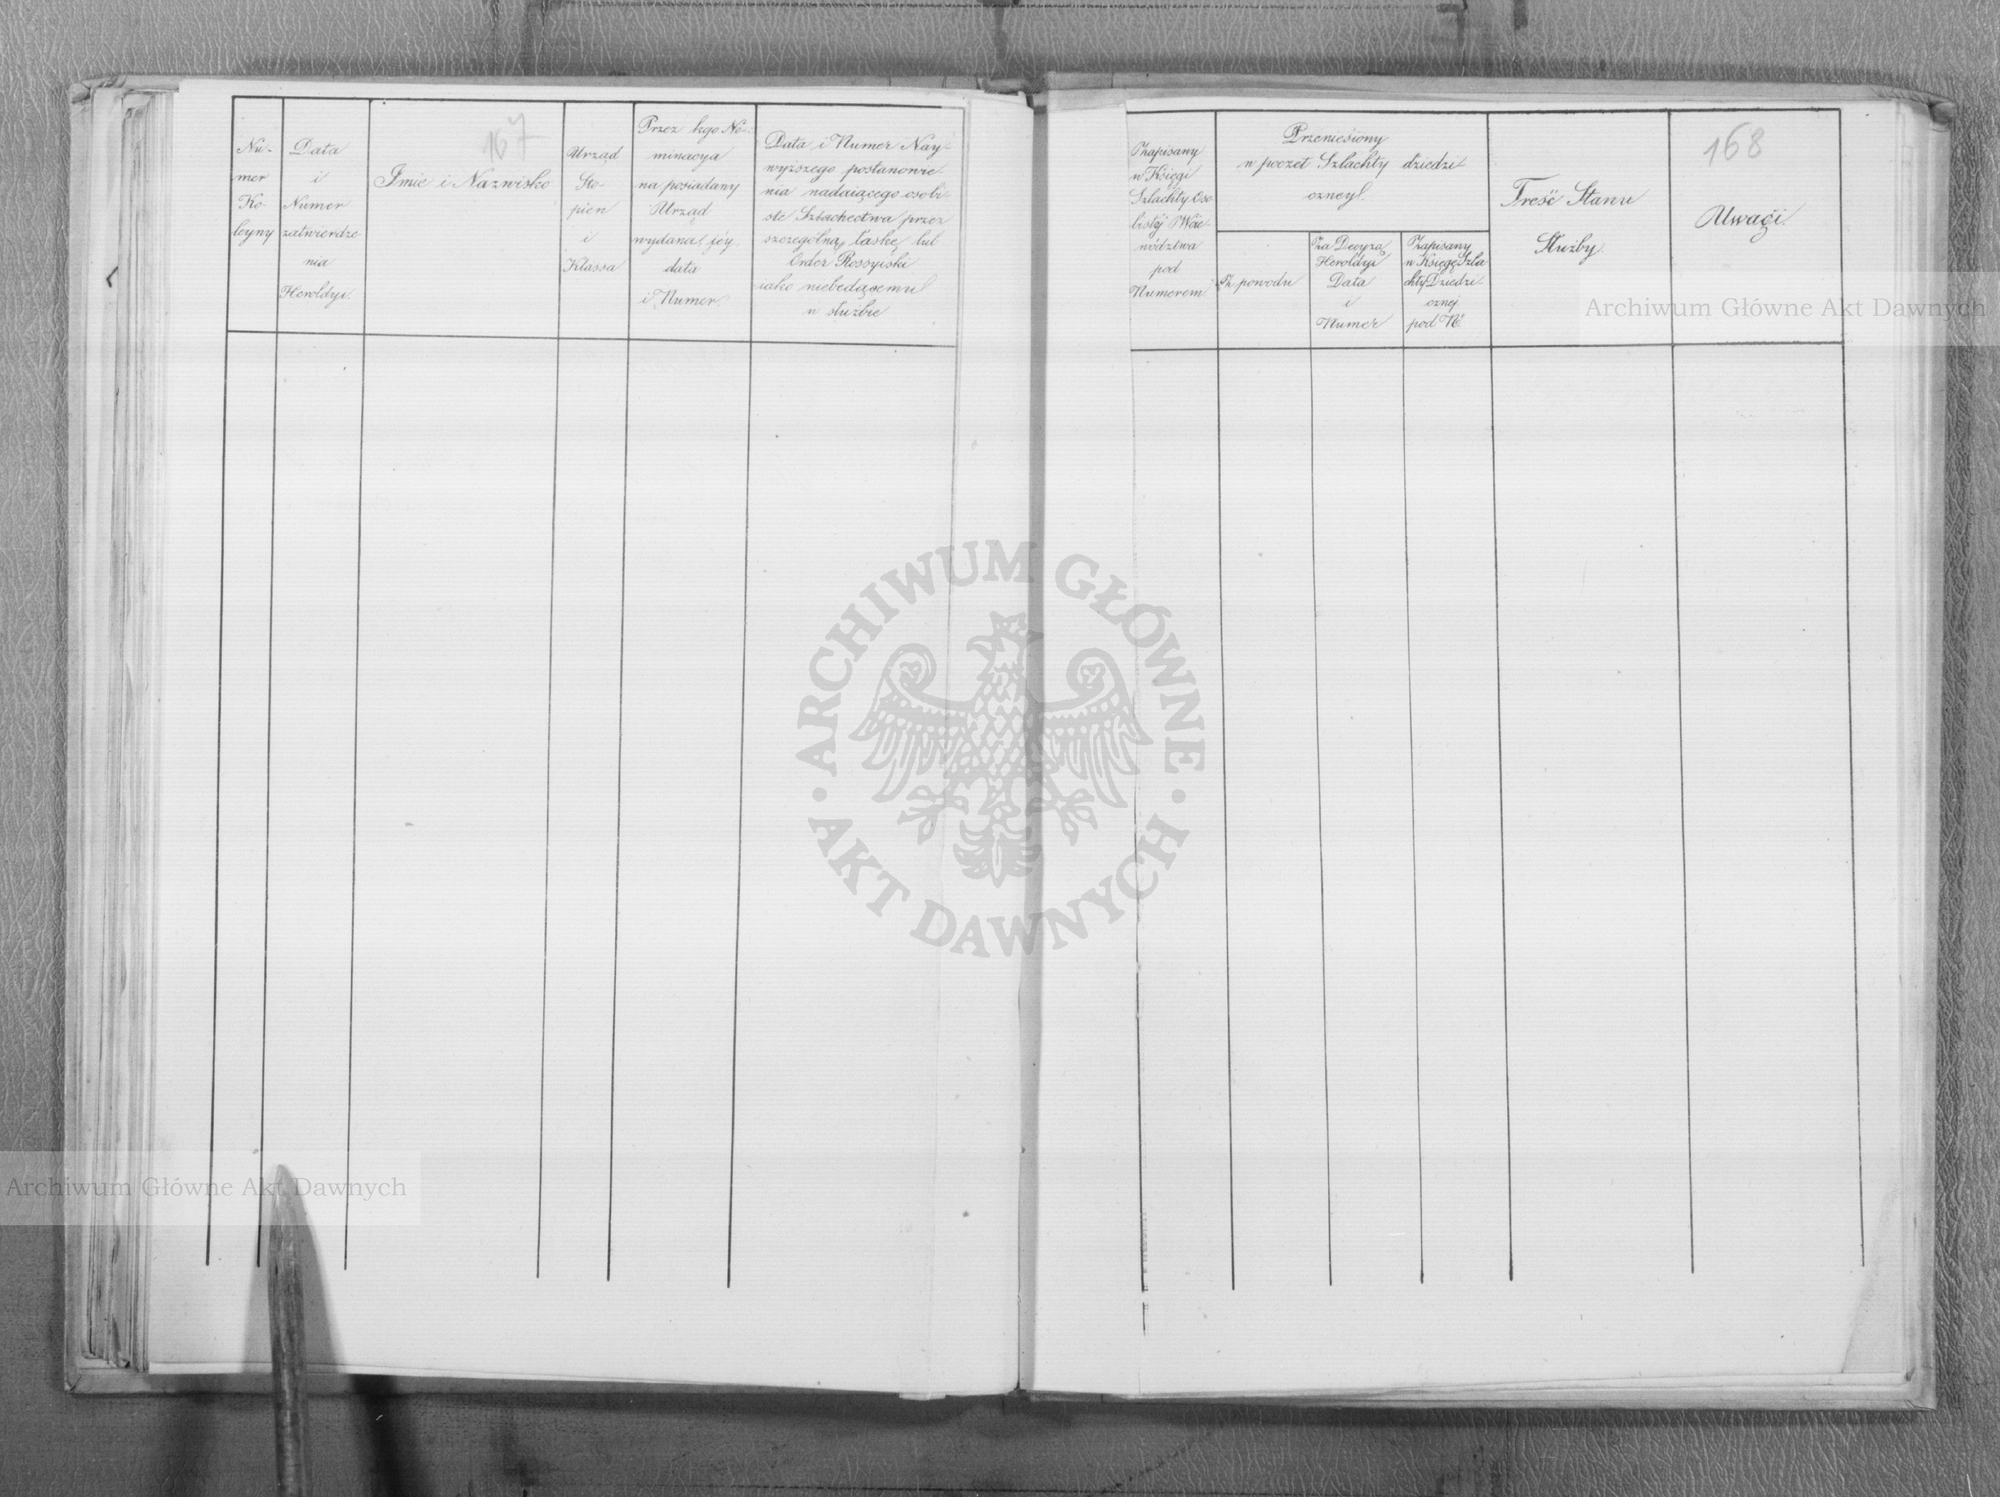 167
Nu-
mer
Ko-
leyny
Data
i
Numer
zatwierdze-
nia
Heroldyi.
Imie i Nazwisko
Urząd
Sto-
pien
i
Klassa
Przez kgo No-
minacya
na posiadany
Urząd
wydana, jéy
data
i Numer
Data i Numer Nay-
wyższego postanowie-
nia nadaiącego osobi-
ste Szlachectwo przez
szczególną łaskę lub
Order Rossyiski
iako niebędącemu
w służbie
168
Zapisany
w Księgi
Szlachty Oso-
bistéj Woie-
wództwa
pod
Numerem
Przeniesiony
w poczet Szlachty dziedzi-
cznej.
Z powodu
Za Decyzą
Heroldyi
Data
i
Numer
Zapisany
w Księgę Szla-
chty Dziedzi-
cznej
pod No.
Treść Stanu
Służby.
Uwagi.
Archiwum Główne Akt Dawnych
ARCHIWUM GŁÓWNE
AKT DAWNYCH
Archiwum Główne Akt Dawnych